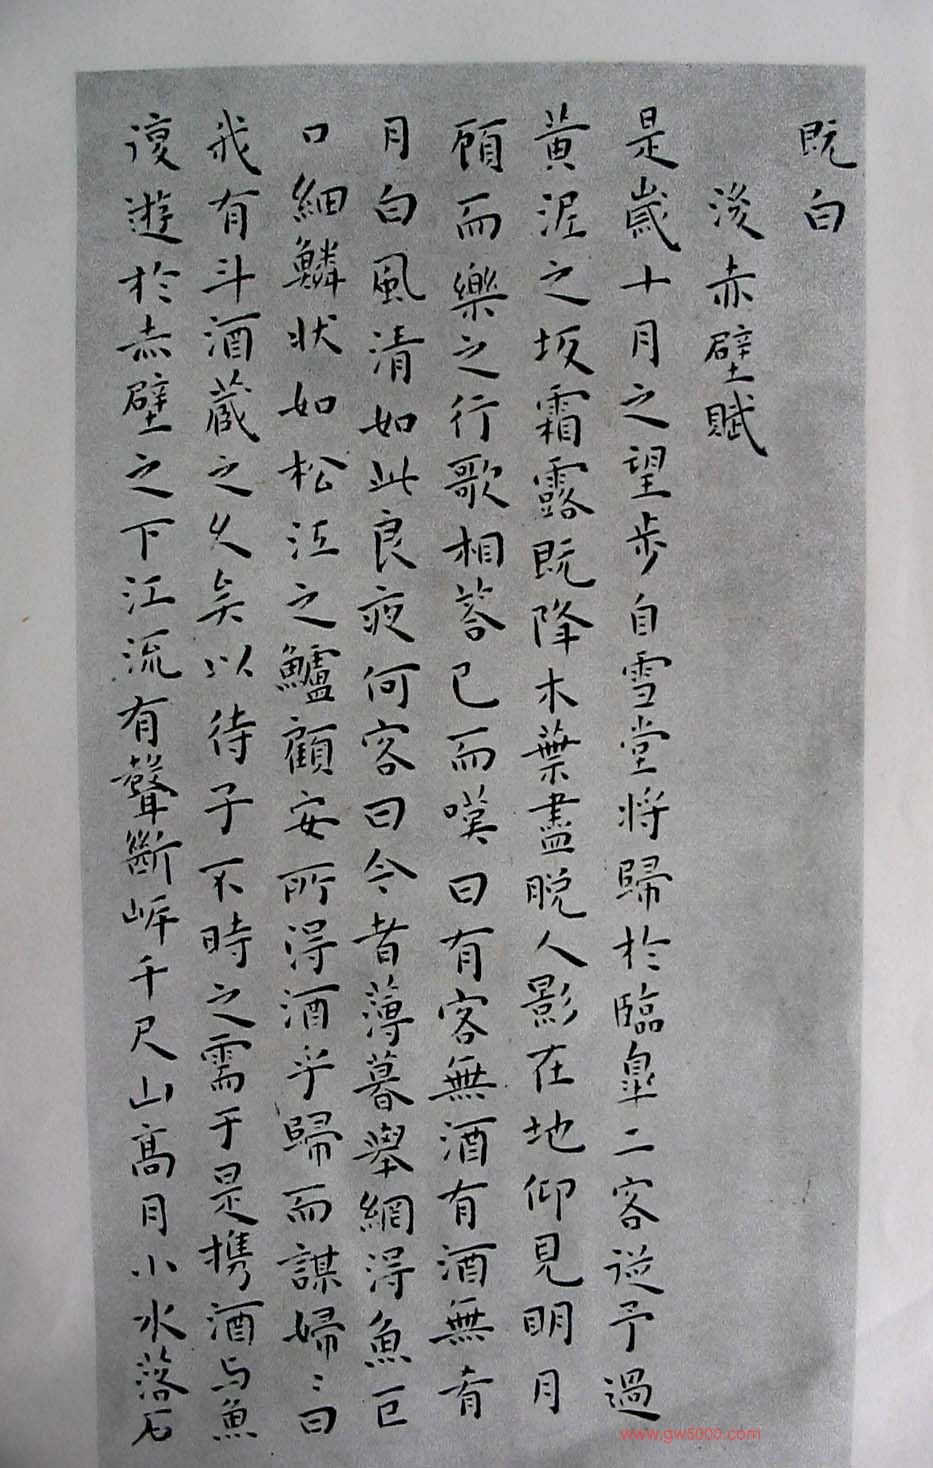 既白
後赤壁賦
是歲十月之望步自雪堂將歸於臨皋二客從予過
黃泥之坂霜露既降木葉盡脫人影在地仰見明月
顧而樂之行歌相答已而嘆曰有客無酒有酒無肴
月白風清如此良夜何客曰今者薄暮舉網得魚巨
口細鱗狀如松江之鱸顧安所得酒乎歸而謀婦〻曰
我有斗酒藏之久矣以待子不時之需于是攜酒与魚
復遊於赤壁之下江流有聲斷岸千尺山高月小水落石
www.gw5000.com